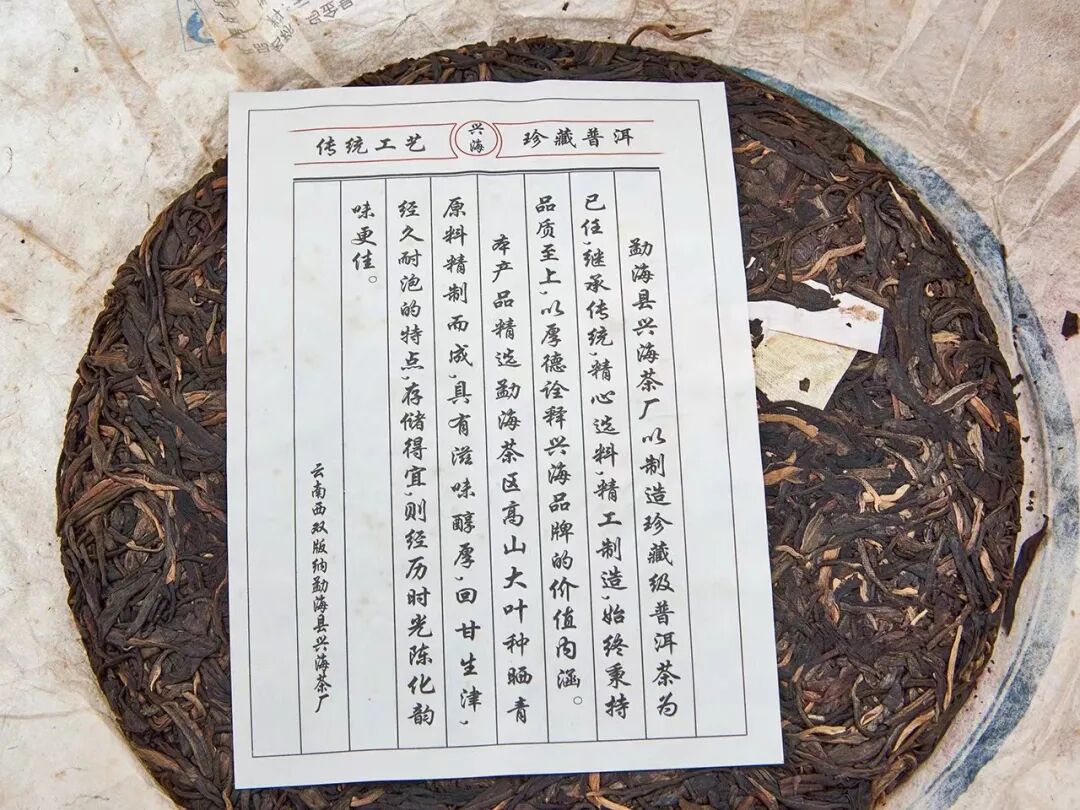 传统工艺 兴海 珍藏普洱
勐海县兴海茶厂以制造珍藏级普洱茶为
已任,继承传统,精心选料,精工制造,始终秉持
品质至上,以厚德诠释兴海品牌的价值内涵。
本产品精选勐海茶区高山大叶种晒青
原料精制而成,具有滋味醇厚,回甘生津,
经久耐泡的特点,存储得宜,则经历时光陈化韵
味更佳。
云南西双版纳勐海县兴海茶厂